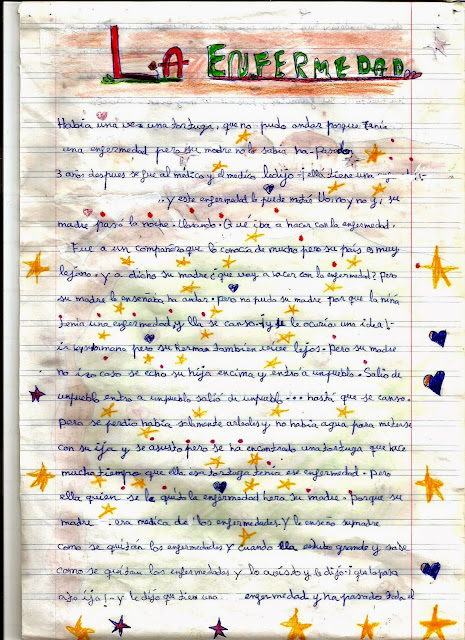 LA ENFERMEDAD
Había una vez una tortuga, que no pudo andar porque tenía
una enfermedad pero su madre no lo sabía ha pasador
3 años despues se fue al medico y el medico le dijo ¡ella tiene una
y este enfermedad le puede matar Uo, no y no y, su
madre pasó la noche llorando. Qué iba a hacer con la enfermedad.
Fue a un compañero que lo conocía de mucho pero su país es muy
lejano. Y a dicho su madre ¿que voy a hacer con la enfermedad? Pero
su madre le enseñaba ha andar. Pero no pudo su madre por que la niña
tenia una enfermedad, y ella se canso ¡y se le ocuria una idea!
ir hermano pero su herman tambien vive lejos. Pero su madre
no izo caso se echo su hija encima y entró a un pueblo. Salio de
un pueblo entro a un pueblo salió de un pueblo... hasta que se canso.
pero se perdio había solamente arboles y no había agua para meterse
con su ija y se asusto pero se ha encontrado una tortuga que hace
mucho tiempo que ella esa tortuga tenia ese enfermedad. Pero
ella quien se le quitó la enfermedad hera su madre. Porque su
madre era medica de los enfermedades. Y le enseño su madre
como se quitan los enfermedades y cuando ella estubo grande y sabe
como se quitan los enfermedades y lo avisto y le dijo ¡ que la pasa
a tu ija! y le dijo que tiene una enfermedad y ha pasados todo el